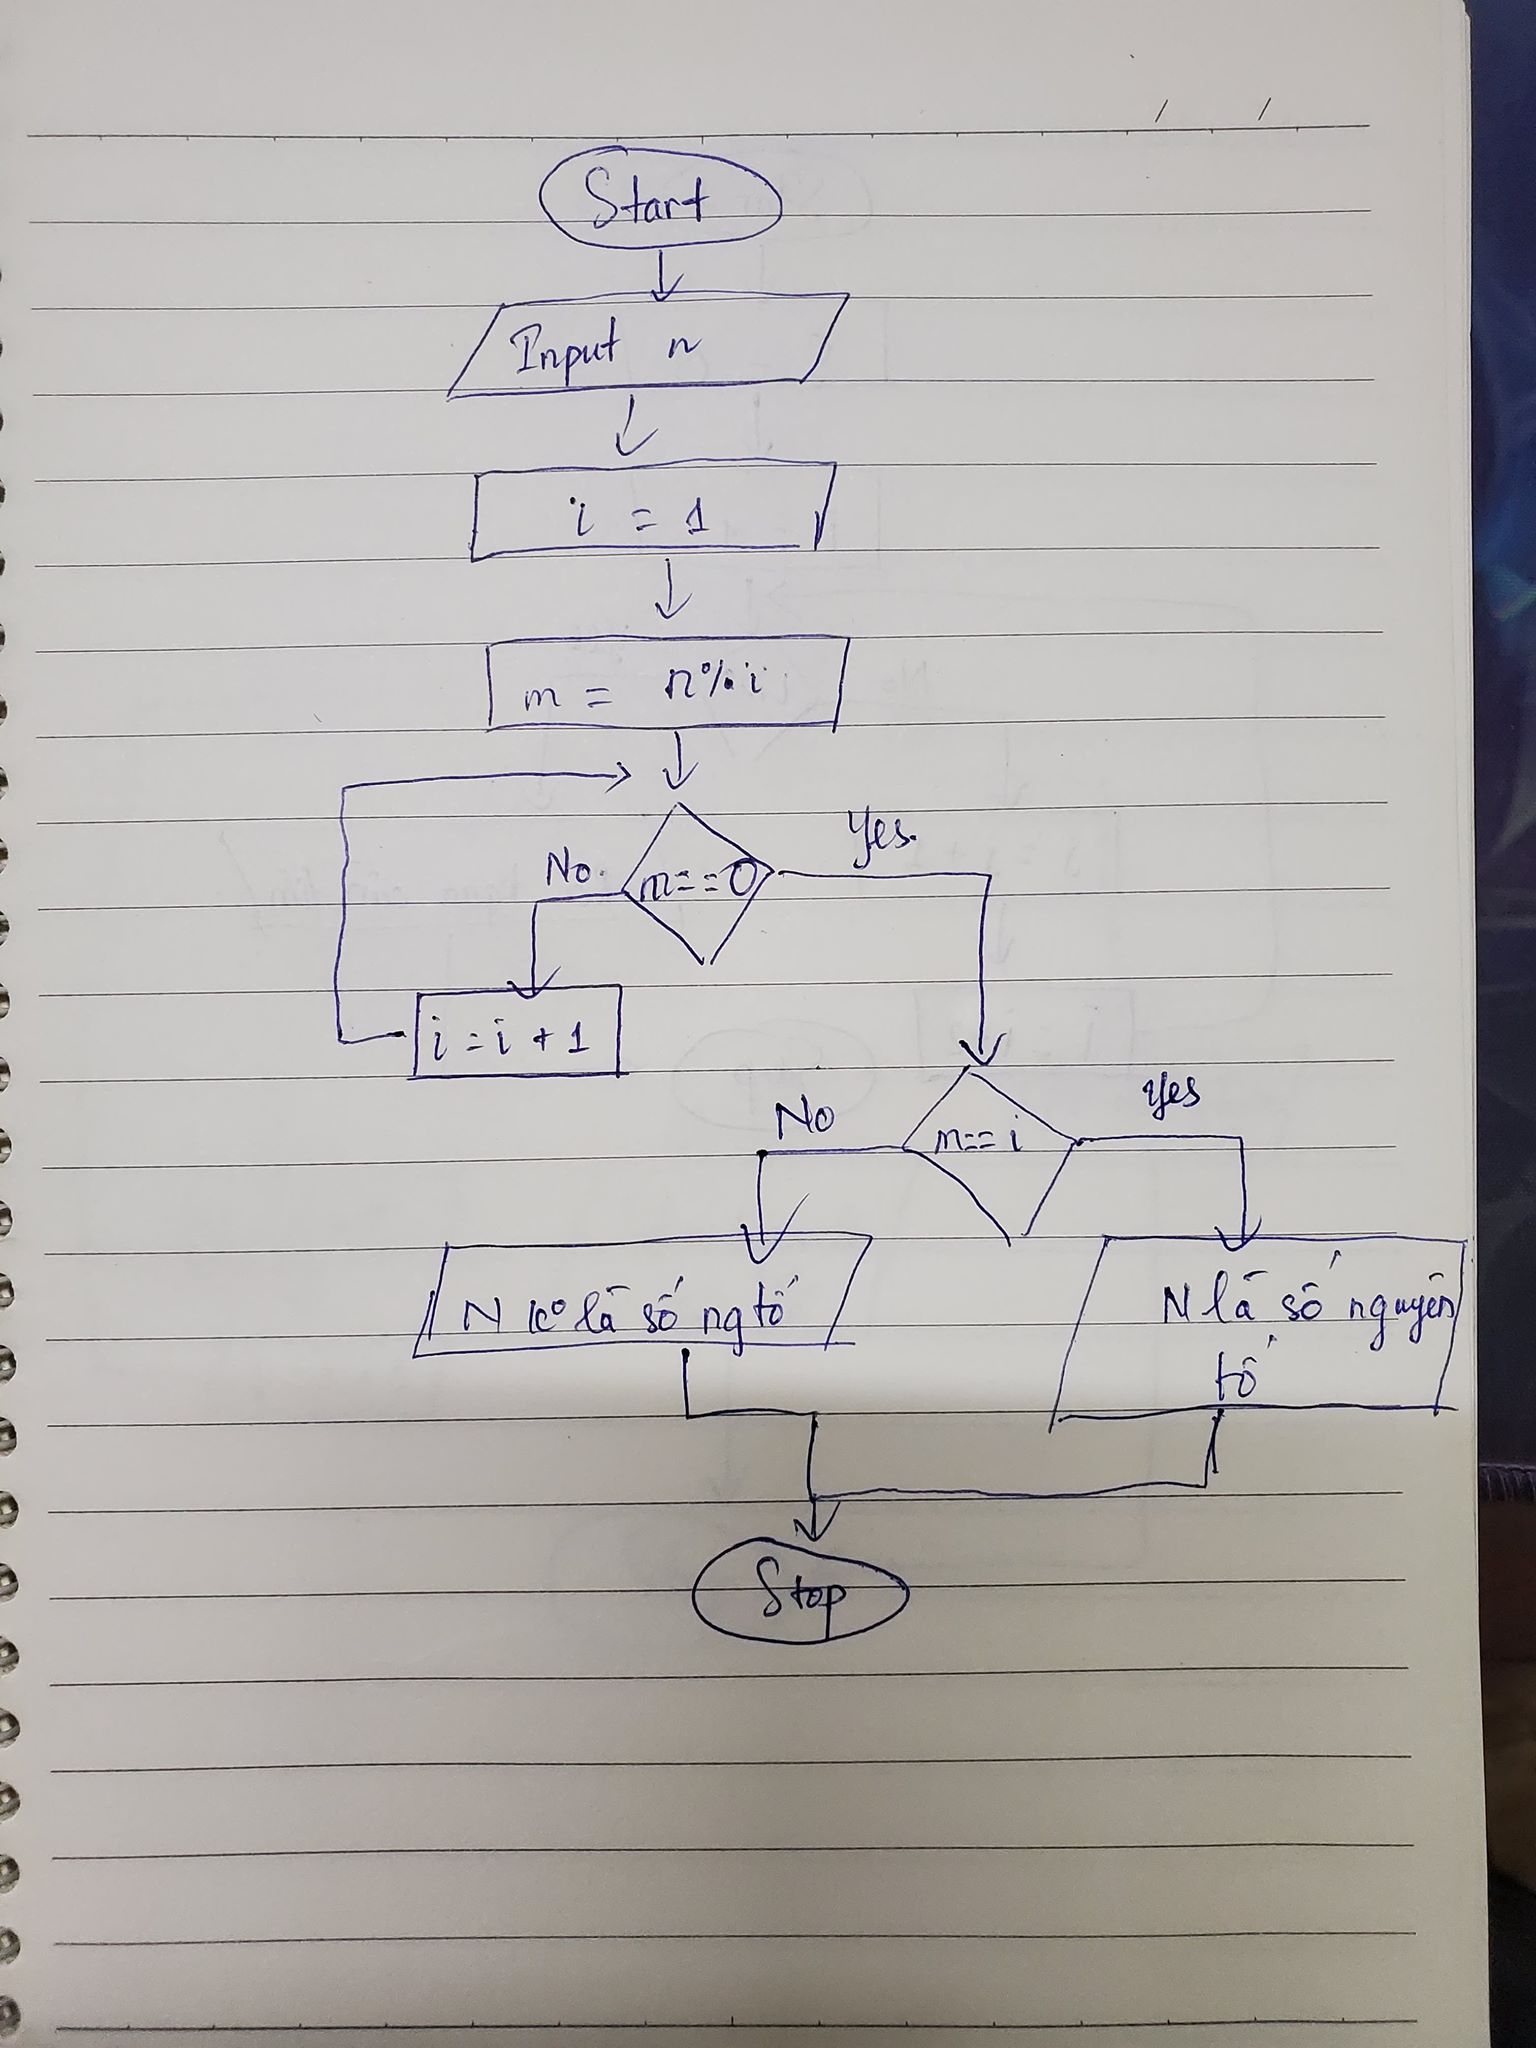 Start
Input n
i = 1
m = n%i
No.
m==0
Yes.
i = i + 1
No
n== i
Yes
N kº là số ng tố
N là số nguyên
tố
Stop